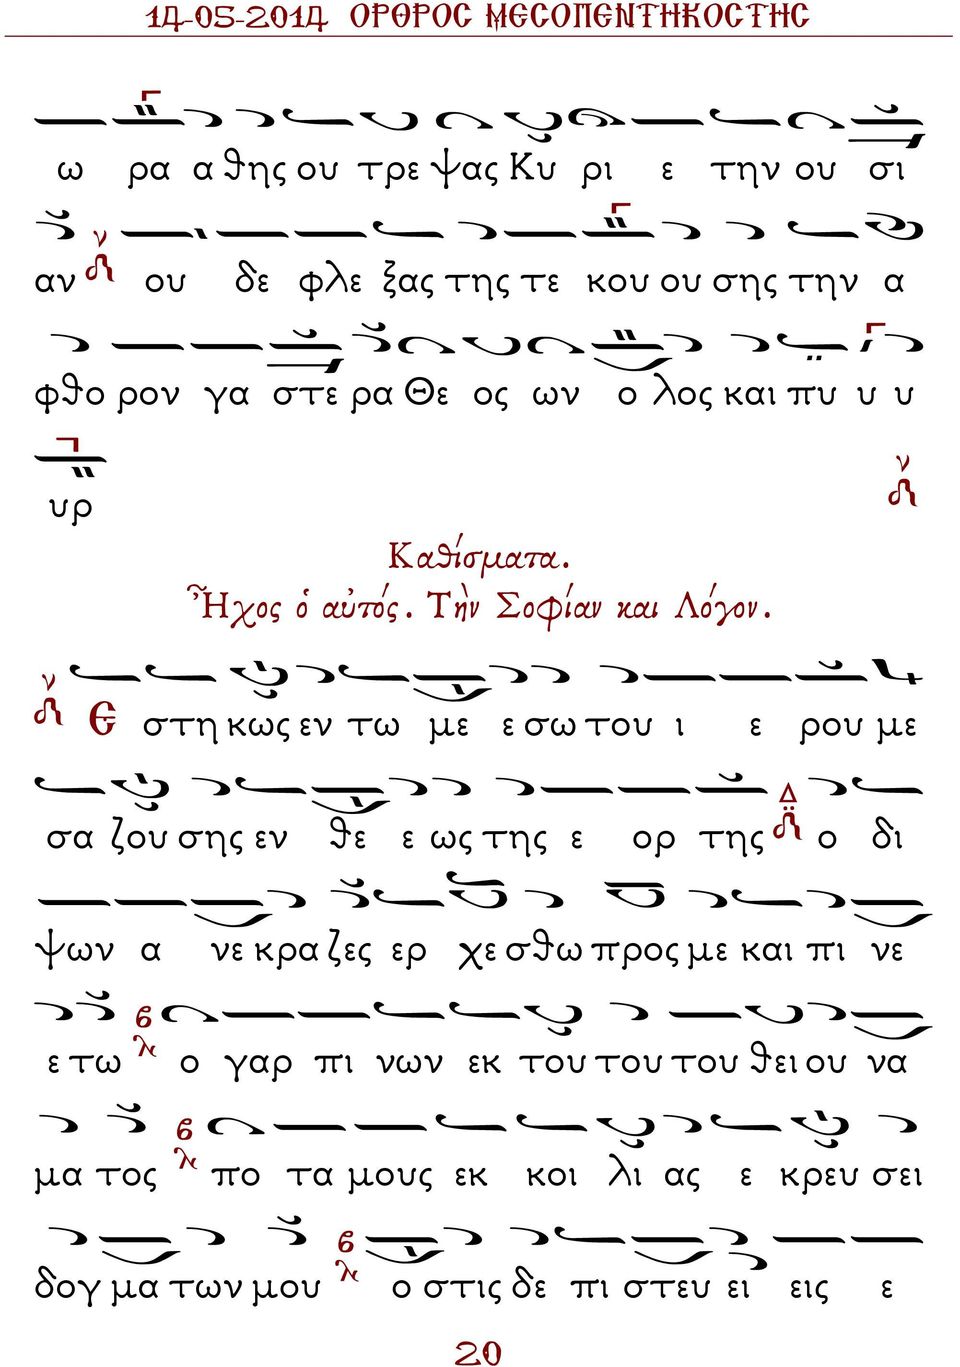 14-05-2014 ΟΡΘΡΟC ΜΕCΟΠΕΝΤΗΚΟCΤΗC
ω ρα α θης ου τρε ψας Κυ ρι ε την ου σι
αν ου δε φλε ξας της τε κου ου σης την α
φθο ρον γα στε ρα Θε ος ων ο λος και πυ υ υ
υρ
Καθίσματα.
Ἦχος ὁ αὐτός. Τὴν Σοφίαν και Λόγον.
Ε στη κως εν τω με ε σω του ι ε ρου με
σα ζου σης εν θε ε ως της ε ορ της Δ ο δι
ψων α νε κρα ζες ερ χε σθω προς με και πι νε
ε τω ο γαρ πι νων εκ του του του θει ου να
μα τος πο τα μους εκ κοι λι ας ε κρευ σει
δογ μα των μου ο στις δε πι στευ ει εις ε
20